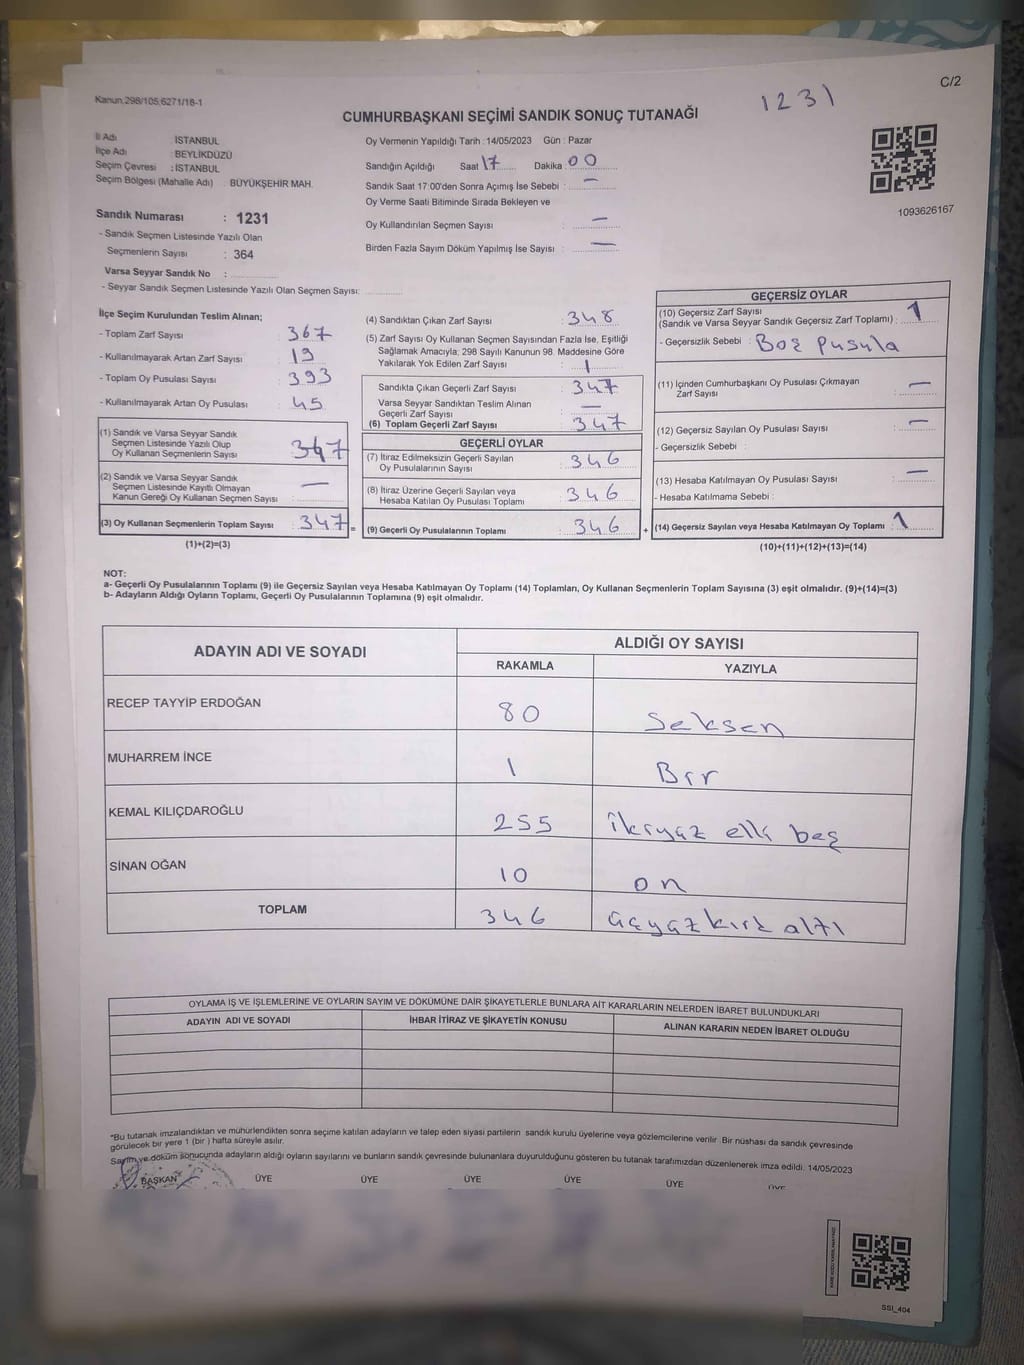 C/2
Kanun,298/105,6271/18-1
1231
CUMHURBAŞKANI SEÇİMİ SANDIK SONUÇ TUTANAĞI
İl Adı : İSTANBUL
İlçe Adı : BEYLİKDÜZÜ
Seçim Çevresi : İSTANBUL
Seçim Bölgesi (Mahalle Adı) BÜYÜKŞEHİR MAH.
Sandık Numarası : 1231
- Sandık Seçmen Listesinde Yazılı Olan
Seçmenlerin Sayısı : 364
Varsa Seyyar Sandık No :
- Seyyar Sandık Seçmen Listesinde Yazılı Olan Seçmen Sayısı:
Oy Vermenin Yapıldığı Tarih : 14/05/2023 Gün : Pazar
Sandığın Açıldığı Saat 17 Dakika 00
Sandık Saat 17:00'den Sonra Açımış İse Sebebi : —
Oy Verme Saati Bitiminde Sırada Bekleyen ve
Oy Kullandırılan Seçmen Sayısı : —
Birden Fazla Sayım Döküm Yapılmış İse Sayısı : —
1093626167
İlçe Seçim Kurulundan Teslim Alınan;
- Toplam Zarf Sayısı : 367
- Kullanılmayarak Artan Zarf Sayısı : 19
- Toplam Oy Pusulası Sayısı : 393
- Kullanılmayarak Artan Oy Pusulası : 45
(1) Sandık ve Varsa Seyyar Sandık
Seçmen Listesinde Yazılı Olup
Oy Kullanan Seçmenlerin Sayısı 347
(2) Sandık ve Varsa Seyyar Sandık
Seçmen Listesinde Kayıtlı Olmayan
Kanun Gereği Oy Kullanan Seçmen Sayısı : —
(3) Oy Kullanan Seçmenlerin Toplam Sayısı : 347 =
(1)+(2)=(3)
(4) Sandıktan Çıkan Zarf Sayısı : 348
(5) Zarf Sayısı Oy Kullanan Seçmen Sayısından Fazla İse, Eşitliği
Sağlamak Amacıyla; 298 Sayılı Kanunun 98. Maddesine Göre
Yakılarak Yok Edilen Zarf Sayısı : 1
Sandıkta Çıkan Geçerli Zarf Sayısı : 347
Varsa Seyyar Sandıktan Teslim Alınan
Geçerli Zarf Sayısı : —
(6) Toplam Geçerli Zarf Sayısı : 347
GEÇERLİ OYLAR
(7) İtiraz Edilmeksizin Geçerli Sayılan
Oy Pusulalarının Sayısı : 346
(8) İtiraz Üzerine Geçerli Sayılan veya
Hesaba Katılan Oy Pusulası Toplamı : 346
(9) Geçerli Oy Pusulalarının Toplamı : 346 +
GEÇERSİZ OYLAR
(10) Geçersiz Zarf Sayısı
(Sandık ve Varsa Seyyar Sandık Geçersiz Zarf Toplamı) : 1
- Geçersizlik Sebebi : Boş Pusula
(11) İçinden Cumhurbaşkanı Oy Pusulası Çıkmayan
Zarf Sayısı : —
(12) Geçersiz Sayılan Oy Pusulası Sayısı : —
- Geçersizlik Sebebi :
(13) Hesaba Katılmayan Oy Pusulası Sayısı : —
- Hesaba Katılmama Sebebi :
(14) Geçersiz Sayılan veya Hesaba Katılmayan Oy Toplamı : 1
(10)+(11)+(12)+(13)=(14)
NOT:
a- Geçerli Oy Pusulalarının Toplamı (9) ile Geçersiz Sayılan veya Hesaba Katılmayan Oy Toplamı (14) Toplamları, Oy Kullanan Seçmenlerin Toplam Sayısına (3) eşit olmalıdır. (9)+(14)=(3)
b- Adayların Aldığı Oyların Toplamı, Geçerli Oy Pusulalarının Toplamına (9) eşit olmalıdır.
ADAYIN ADI VE SOYADI ALDIĞI OY SAYISI
RAKAMLA YAZIYLA
RECEP TAYYİP ERDOĞAN 80 Seksen
MUHARREM İNCE 1 Bir
KEMAL KILIÇDAROĞLU 255 ikiyüz elli beş
SİNAN OĞAN 10 on
TOPLAM 346 üçyüz kırk altı
OYLAMA İŞ VE İŞLEMLERİNE VE OYLARIN SAYIM VE DÖKÜMÜNE DAİR ŞİKAYETLERLE BUNLARA AİT KARARLARIN NELERDEN İBARET BULUNDUKLARI
ADAYIN ADI VE SOYADI İHBAR İTİRAZ VE ŞİKAYETİN KONUSU ALINAN KARARIN NEDEN İBARET OLDUĞU
*Bu tutanak imzalandıktan ve mühürlendikten sonra seçime katılan adayların ve talep eden siyasi partilerin sandık kurulu üyelerine veya gözlemcilerine verilir. Bir nüshası da sandık çevresinde
görülecek bir yere 1 (bir) hafta süreyle asılır.
Sayım ve döküm sonucunda adayların aldığı oyların sayılarını ve bunların sandık çevresinde bulunanlara duyurulduğunu gösteren bu tutanak tarafımızdan düzenlenerek imza edildi. 14/05/2023
BAŞKAN ÜYE ÜYE ÜYE ÜYE ÜYE ÜYE
SSİ_404